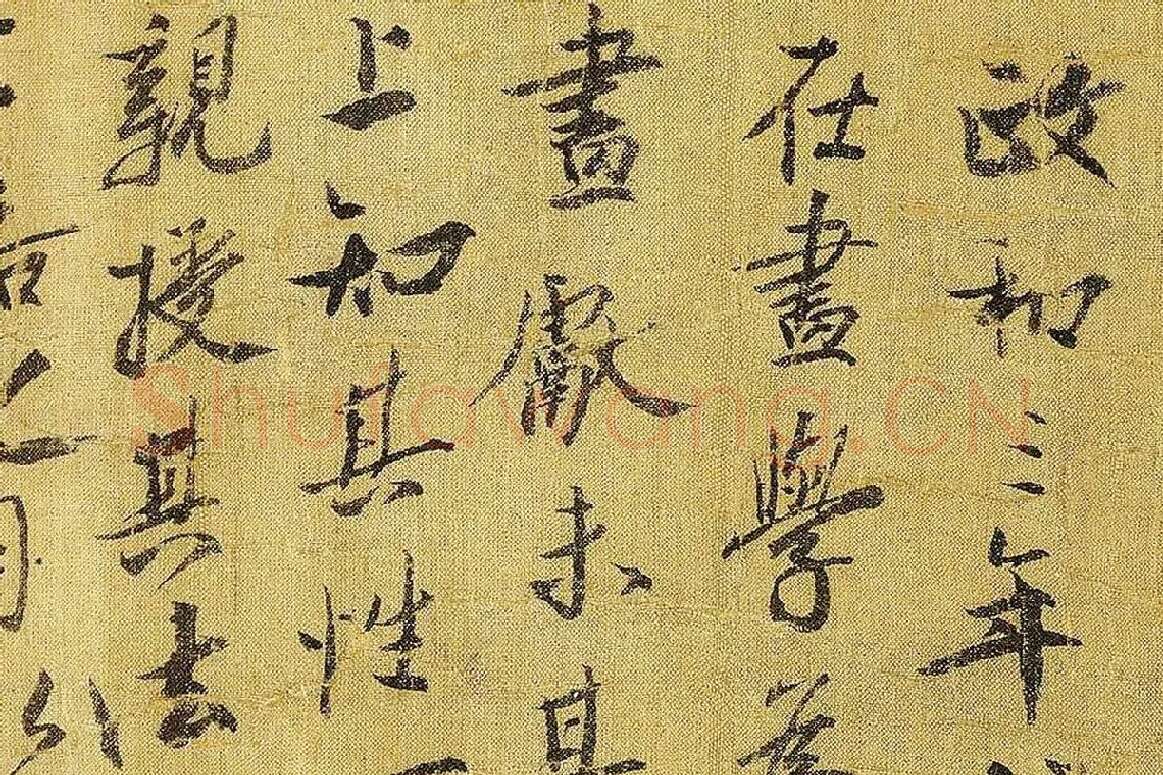 政和三年
在畫學為
畫獻未甚
上知其性
親授其法
Shufawang.CN